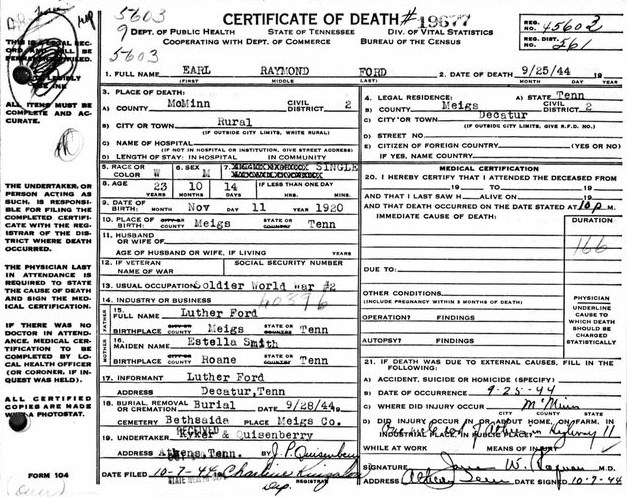 5603
9
CERTIFICATE OF DEATH #19677
DEPT. OF PUBLIC HEALTH STATE OF TENNESSEE DIV. OF VITAL STATISTICS
COOPERATING WITH DEPT. OF COMMERCE BUREAU OF THE CENSUS
REG. NO. 45602
REG. DIST. NO. 561
5603
1. FULL NAME EARL RAYMOND FORD 2. DATE OF DEATH 9/25/44 19
(FIRST) MIDDLE LAST)
THIS IS A LEGAL RECORD AND WILL BE
LEGIBLY
USE INK
ALL ITEMS MUST BE COMPLETE AND ACCURATE.
THE UNDERTAKER, OR PERSON ACTING AS SUCH, IS RESPONSIBLE FOR FILING THE COMPLETED CERTIFICATE WITH THE REGISTRAR OF THE DISTRICT WHERE DEATH OCCURRED.
THE PHYSICIAN LAST IN ATTENDANCE IS REQUIRED TO STATE THE CAUSE OF DEATH AND SIGN THE MEDICAL CERTIFICATION.
IF THERE WAS NO DOCTOR IN ATTENDANCE, MEDICAL CERTIFICATION TO BE COMPLETED BY LOCAL HEALTH OFFICER (OR CORONER, IF INQUEST WAS HELD).
ALL CERTIFIED COPIES ARE MADE WITH A PHOTOSTAT.
FORM 104
3. PLACE OF DEATH:
A) COUNTY McMinn CIVIL DISTRICT 2
B) CITY OR TOWN Rural
(IF OUTSIDE CITY LIMITS, WRITE RURAL)
C) NAME OF HOSPITAL
(IF NOT IN HOSPITAL OR INSTITUTION, GIVE STREET ADDRESS)
D) LENGTH OF STAY: IN HOSPITAL IN COMMUNITY
5. RACE OR COLOR W 6. SEX M 7. SINGLE
8. AGE 23 YEARS 10 MONTHS 14 DAYS IF LESS THAN ONE DAY HRS. MINS.
9. DATE OF BIRTH: MONTH Nov DAY 11 YEAR 1920
10. PLACE OF BIRTH CITY OR COUNTY Meigs STATE OR COUNTRY Tenn
11. HUSBAND OR WIFE OF
AGE OF HUSBAND OR WIFE, IF LIVING YEARS
12. IF VETERAN NAME OF WAR SOCIAL SECURITY NUMBER
13. USUAL OCCUPATION Soldier World War #2
14. INDUSTRY OR BUSINESS 40396
FATHER
15. FULL NAME Luther Ford
BIRTHPLACE CITY OR COUNTY Meigs STATE OR COUNTRY Tenn
MOTHER
16. MAIDEN NAME Estella Smith
BIRTHPLACE CITY OR COUNTY Roane STATE OR COUNTRY Tenn
17. INFORMANT Luther Ford
ADDRESS Decatur, Tenn
18. BURIAL, REMOVAL OR CREMATION Burial 9/28/44 19
CEMETERY Bethsaida Meigs Co.
RECEIVED
19. UNDERTAKER Kyker & Quisenberry
ADDRESS Athens, Tenn. BY J. P. Quisenberry
DATE FILED 10-7-44
REGISTRAR
Dep.
4. LEGAL RESIDENCE: A) STATE Tenn
B) COUNTY Meigs CIVIL DISTRICT 2
C) CITY OR TOWN Decatur
(IF OUTSIDE CITY LIMITS, GIVE R.F.D. NO.)
D) STREET NO.
E) CITIZEN OF FOREIGN COUNTRY (YES OR NO)
IF YES, NAME COUNTRY
MEDICAL CERTIFICATION
20. I HEREBY CERTIFY THAT I ATTENDED THE DECEASED FROM
19 TO 19
AND THAT I LAST SAW H ALIVE ON 19
AND THAT DEATH OCCURRED ON THE DATE STATED AT P M.
IMMEDIATE CAUSE OF DEATH: DURATION
166
DUE TO:
OTHER CONDITIONS:
(INCLUDE PREGNANCY WITHIN 3 MONTHS OF DEATH)
OPERATION? FINDINGS
AUTOPSY? FINDINGS
PHYSICIAN UNDERLINE CAUSE TO WHICH DEATH SHOULD BE CHARGED STATISTICALLY
21. IF DEATH WAS DUE TO EXTERNAL CAUSES, FILL IN THE FOLLOWING:
A) ACCIDENT, SUICIDE OR HOMICIDE (SPECIFY)
B) DATE OF OCCURRENCE 9-25-44
C) WHERE DID INJURY OCCUR McMinn
CITY COUNTY STATE
D) DID INJURY OCCUR IN OR ABOUT HOME, ON FARM, IN INDUSTRIAL PLACE, IN PUBLIC PLACE? Highway 11
WHILE AT WORK MEANS OF INJURY
SIGNATURE M.D.
ADDRESS Athens Tenn DATED 10-7-44